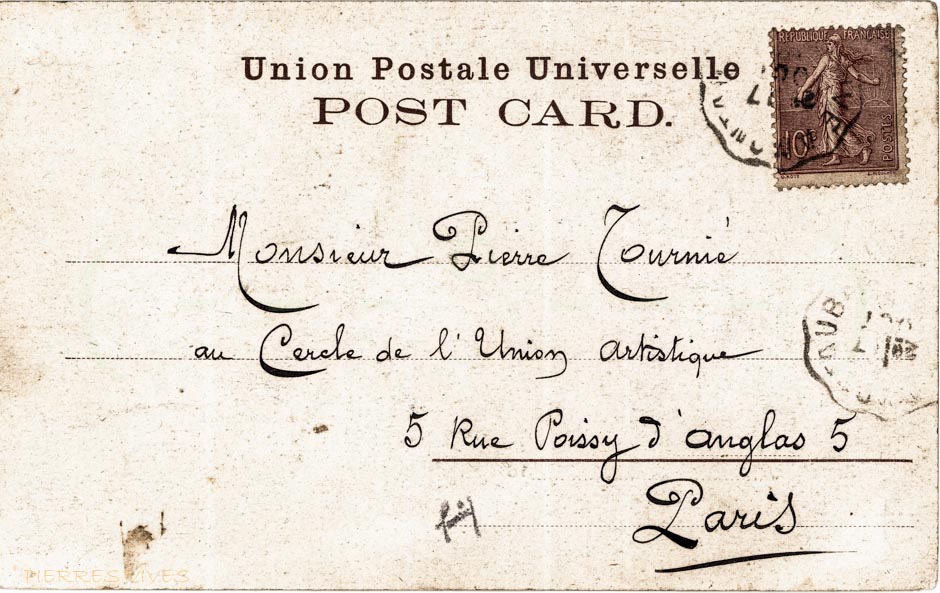 Union Postale Universelle
POST CARD.
REPUBLIQUE FRANÇAISE
10c
POSTES
Monsieur Pierre Tournié
au Cercle de l'Union artistique
5 Rue Poissy d'anglas 5
Paris
AUB
PIERRES VIVES